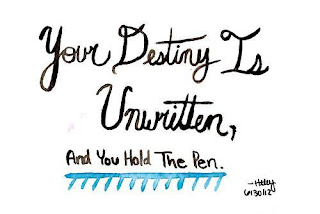 Your Destiny Is
Unwritten,
And You Hold The Pen.
6/30/12